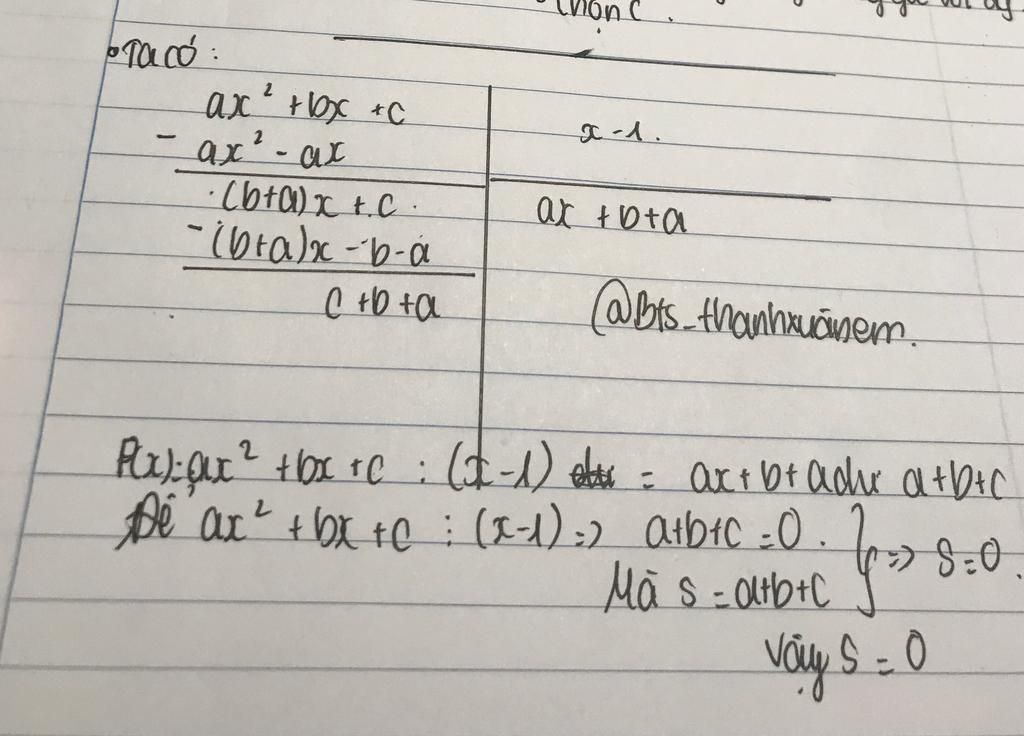 chọn C.
Ta có:
ax² + bx + c
x - 1.
- ax² - ax
(b+a)x + c
ax + b + a
- (b+a)x - b - a
c + b + a
@Bts_thanhxuânem.
P(x) = ax² + bx + c : (x - 1) = ax + b + a dư a+b+c
Để ax² + bx + c ⋮ (x-1) => a+b+c = 0. } => S = 0.
Mà S = a+b+c
Vậy S = 0